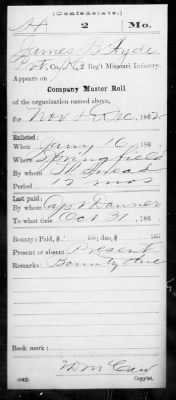 (Confederate.)
H 2 Mo.
James B Hyde
Pvt, Co. K, 2 Reg't Missouri Infantry.
Appears on
Company Muster Roll
of the organization named above,
for Nov & Dec, 1862
Enlisted:
When Jany 16, 186
Where Springfield
By whom
Period 12 mos
Last paid:
By whom Capt Danner
To what time Oct 31, 186
Bounty: Paid, $ ; due, $
Present or absent Present
Remarks: Bounty due
Book mark:
Copyist.